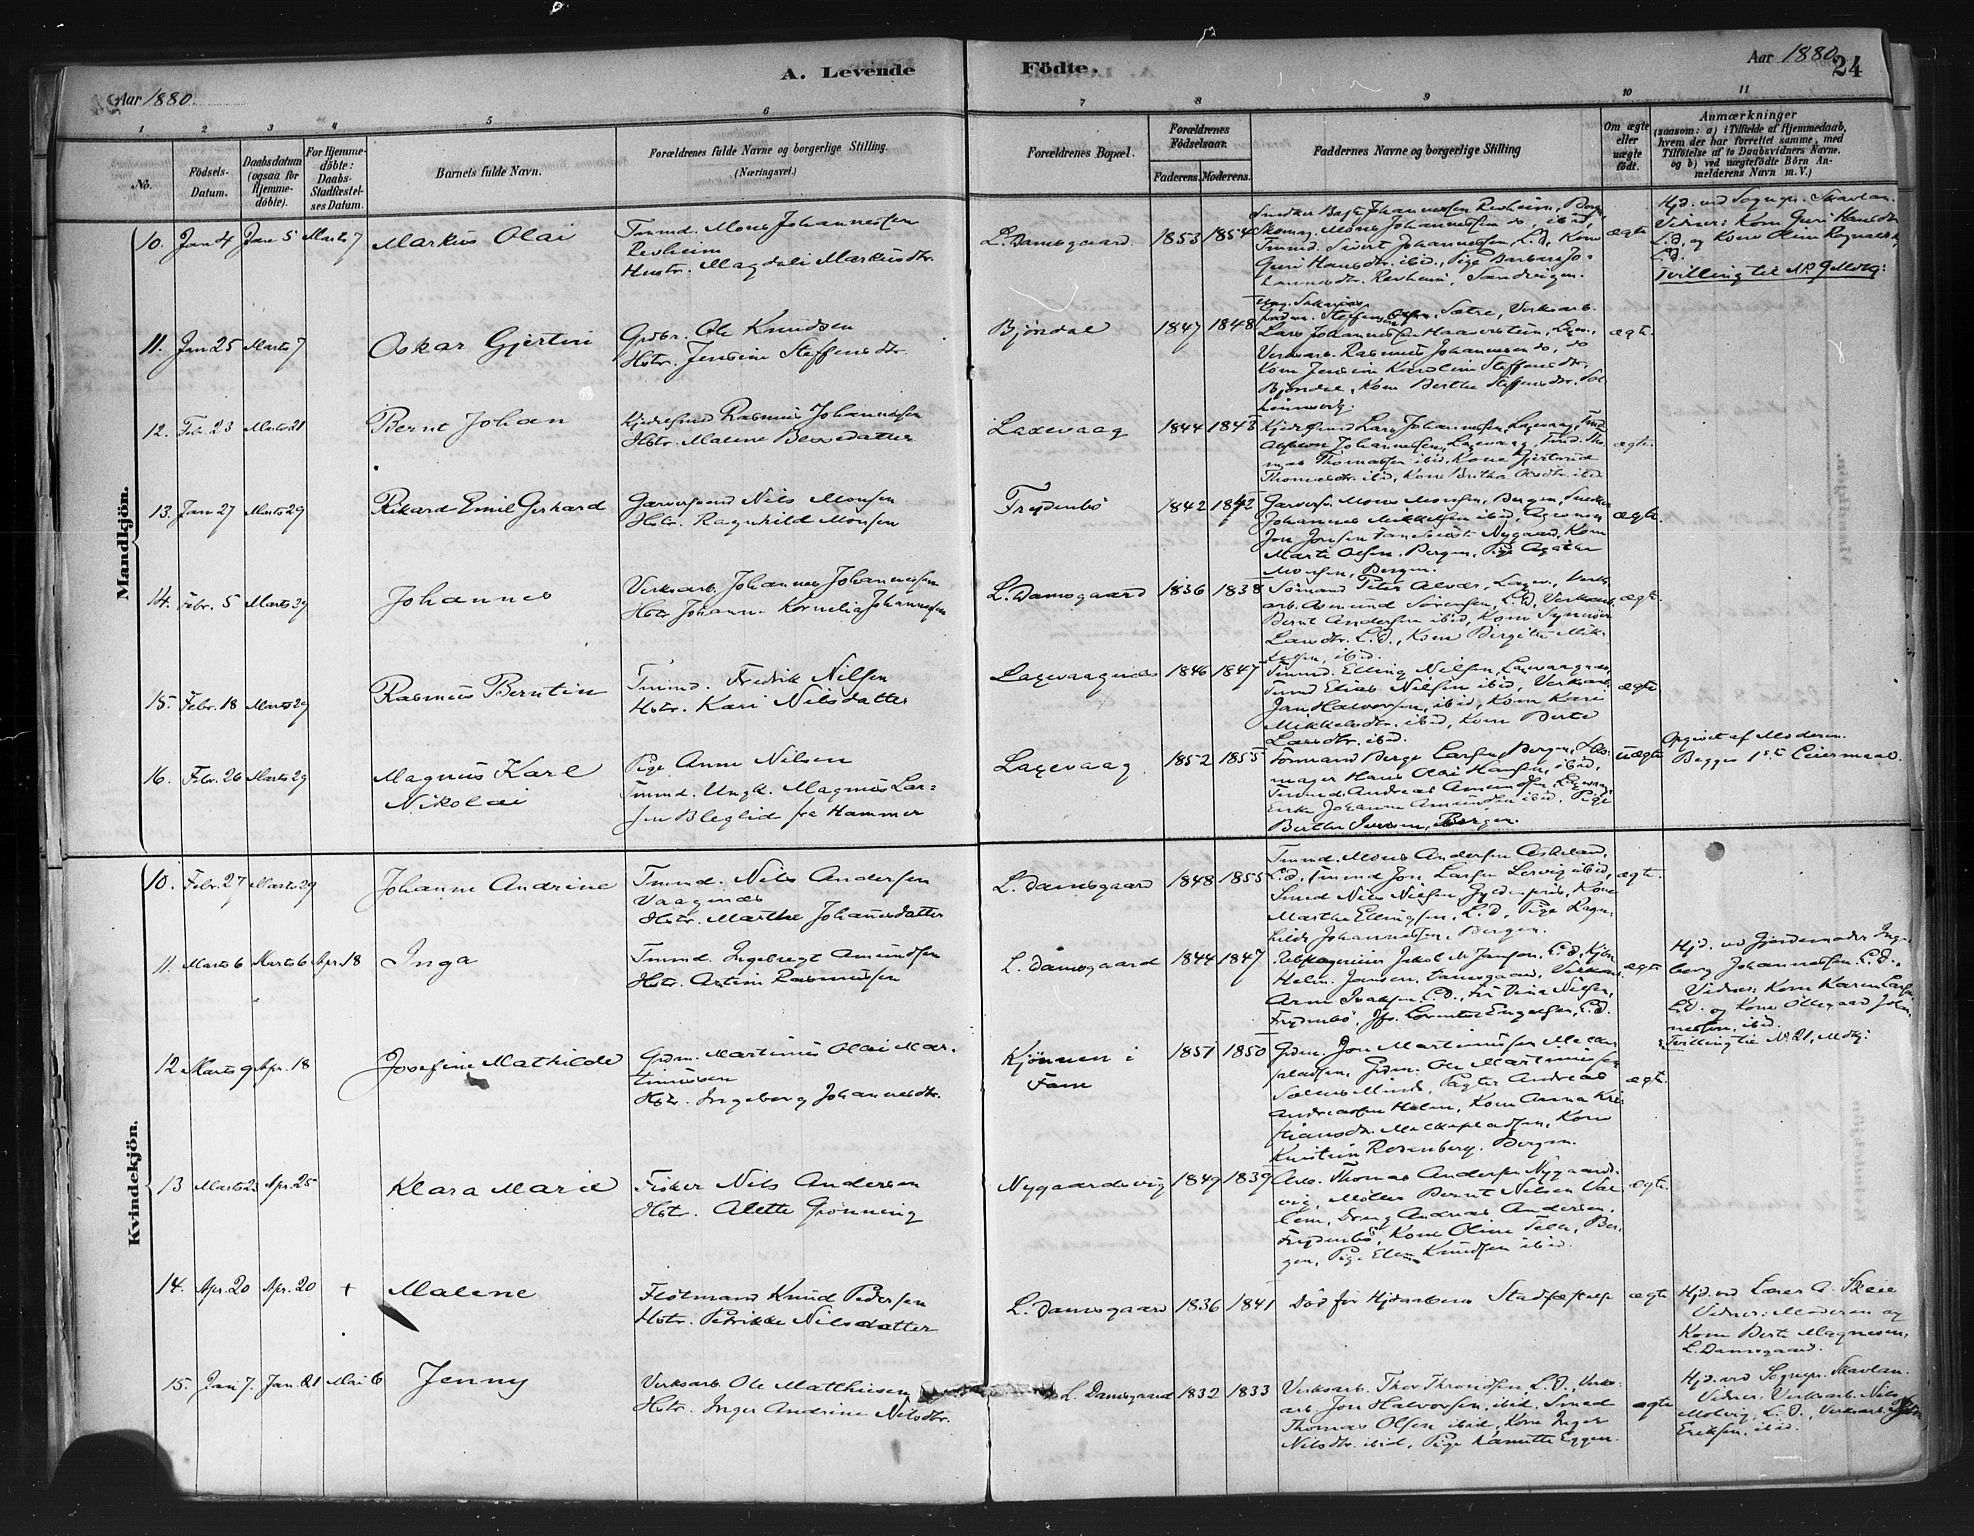 A. Levende
Födte.
Aar 1880.
Aar 1880
24
1 2 3 4 5 6 7 8 9 10 11
No.
Födsels-
Datum.
Daabsdatum
(ogsaa for
Hjemme-
döbte).
For Hjemme-
döbte:
Daabs-
Stadfæstel-
ses Datum.
Barnets fulde Navn.
Forældrenes fulde Navne og borgerlige Stilling
(Næringsvei.)
Forældrenes Bopæl.
Forældrenes
Födselsaar.
Faderens. Moderens.
Faddernes Navne og borgerlige Stilling
Om ægte
eller
uægte
födt.
Anmærkninger
(saasom: a) i Tilfælde af Hjemmedaab,
hvem der har forrettet samme, med
Tilföielse af to Daabsvidners Navne.
og b) ved uægtefödte Börn An-
melderens Navn m. V.)
Mandkjön.
10. Jan 4 Jan 5 Marts 7 Markus Olai
Tmmd. Mons Johannessen
Revheim
Hustr. Magdali Markusdtr.
L. Damsgaard 1853 1854
Snedker Johannessen Revheim,
Skomag. Mons Johannessen do, ibid,
Tmmd. Sivert Johannessen, L. D, Kone
Guri Hansdtr ibid., Pige Barbara Jo-
hannesdtr. Revheim, Sandvigen.
ægte
Hjd. ved Sognepr. Skavlan.
Vidner: Kone Guri Hansdtr
L. D. og Kone Oline
L. D.
Tvilling til № 9 Mdkj:
11. Jan 25 Marts 7 Oskar Gjertin
Grdbr. Ole Knudsen
Hstr. Jensine Steffensdtr.
Bjöndal 1847 1848
Steffen Sætre, Verksarb.
Lars Johannessen
Verksarb. Rasmus Johannessen do, do
Kone Jensine Karoline Steffensdtr.
Bjöndal, Kone Berthe Steffensdtr.
ægte.
12. Febr. 23 Marts 21 Bernt Johan
Kjedelsmed Rasmus Johannessen
Hstr. Malene Bersdatter
Laxevaag 1844 1843
Kjedelsmed Lars Johannessen, Laxevaag, Tmd.
Johannessen, Laxevaag, Tmd. Tho-
mas Thomassen ibid, Kone Gjertrud
Thomasdtr. ibid, Kone Bertha Olsdtr ibid
ægte.
13. Jan 27 Marts 29 Rikard Emil Gerhard
Garversvend Nils Monsen
Hstr. Ragnhild Monsen
Frydenbö 1842 1842
Garversv. Mons Monsen, Bergen, Snedker
Johannes Mikkelsen ibid,
Jon Jonsen Nygaard, Kone
Marta Olsen, Bergen, Pige Agathe
Monsen, Bergen.
ægte.
14. Febr. 5 Marts 29 Johannes
Verksarb. Johannes Johannessen
Hstr. Johann. Kornelia Johannessen
L. Damsgaard 1836 1838
Sömand Peter Laxev., Verks-
arb. Asmund Sörensen, L. D, Verksarb.
Bernt Andersen ibid, Kone Synnöve
Larsdtr. L. D., Kone Bergitte Mik-
kelsen, ibid.
ægte.
15. Febr. 18 Marts 29 Rasmus Berntin
Tmmd. Fredrik Nilsen
Hstr. Kari Nilsdatter
Laxevaagnæs 1846 1847
Tmmd. Elling Nilsen, Laxvaagnæs,
Tmmd Elias Nilsen ibid, Verksarb.
Jon Halvorsen, ibid, Kone Kari
Mikkelsdtr. ibid, Kone Berte
Larsdtr. ibid.
ægte
16. Febr. 26 Marts 29 Magnus Karl
Nikolai
Pige Anne Nilsen
Tmmd. Ungk. Magnus Lar-
sen Bleglid fra Hammer
Laxevaag 1852 1855
Formand Berge Larsen, Bergen, Sko-
mager Hans Olai Hansen, ibid,
Tmmd. Andreas Amundsen, Laxevaag,
Enke Johanne Amundsen ibid, Pige
Berthe Iversen, Bergen.
uægte
Opgivet af Moderen.
Begges 1ste Leiermaal.
Kvindekjön.
10. Febr. 27 Marts 29 Johanne Andrine
Tmmd. Nils Andersen
Vaagenæs
Hstr. Marthe Johannesdatter
L. Damsgaard 1848 1855
Tmmd. Mons Andersen Askeland,
L. D, Tmmd Jon Larsen Lervig ibid,
Smed Nils Nielsen Gyldenpris, Kone
Marthe Ellingsen, L. D, Pige Ragn-
hilde Johannessen, Bergen.
ægte.
11. Marts 6 Marts 6 Apr. 18 Inga
Tmmd. Ingebregt Amundsen
Hstr. Artine Rasmussen
L. Damsgaard 1844 1847
Jakob M. Jansen, L. D, Kjöbm
Helm. Jansen, Damsgaard, Verksarb.
Arne Isaksen L. D., Fru Dina Nielsen,
Frydenbö, Jfr. Lorentse Engelsen, L. D.
ægte
Hjd. ved Gjordemoder Inge-
borg Johannessen L. D.
Vidner: Kone Karen Larsen,
L. D. og Kone Ollegaard Johan-
nessen, ibid.
Tvilling til № 21, Mdkj:
12 Marts 9 Apr. 18 Josefine Mathilde
Grdm. Martinus Olai Mar-
tinussen
Hstr. Ingeborg Johannesdtr.
Kjönnen i
Fane
1851 1850
Grdm. Jon Martinussen Melkе-
pladsen, Grdm. Ole Martinussen
Solens Minde, Pagter Andreas
Andreassen Holm, Kone Anna Kri-
stiansdtr. Melkepladsen, Kone
Kirstine Rosenberg, Bergen.
ægte.
13 Marts 23 Apr. 25 Klara Marie
Fisker Nils Andersen
Hstr. Alette Grönning
Nygaardsvig 1849 1839
Arb. Thomas Andersen Nygaards-
vig, Möller Bernt Nilsen
Dreng Andreas Andersen,
Frydenbö, Kone Oline Ber-
gen, Pige Ellen Knudsen ibid.
ægte.
14. Apr. 20 Apr. 20 + Malene
Flotmand Knud Pedersen
Hstr. Petrikke Nilsdatter
L. Damsgaard 1836 1841
Död för Hjdaabens Stadfæstelse
ægte
Hjd. ved Lærer A. Skeie
Vidner: Moderen og
Kone Berte Magnesen,
L. Damsgaard.
15. Jan 7. Jan. 21 Mai 6 Jenny
Verksarb. Ole Matthiesen
Hstr. Inger Andrine Nilsdtr.
L. Damsgaard 1832 1833
Verksarb. Thor Throndsen, L. D., Verks-
arb. Jon Halvorsen, ibid, Smed
Thomas Olsen ibid, Kone Inger
Nilsdtr. ibid, Pige Kanutte Eggen.
ægte
Hjd. ved Sognepr. Skavlan.
Vidner: Verksarb. Nils
Molvig, L. D., Verksarb.
Eriksen, ibid.